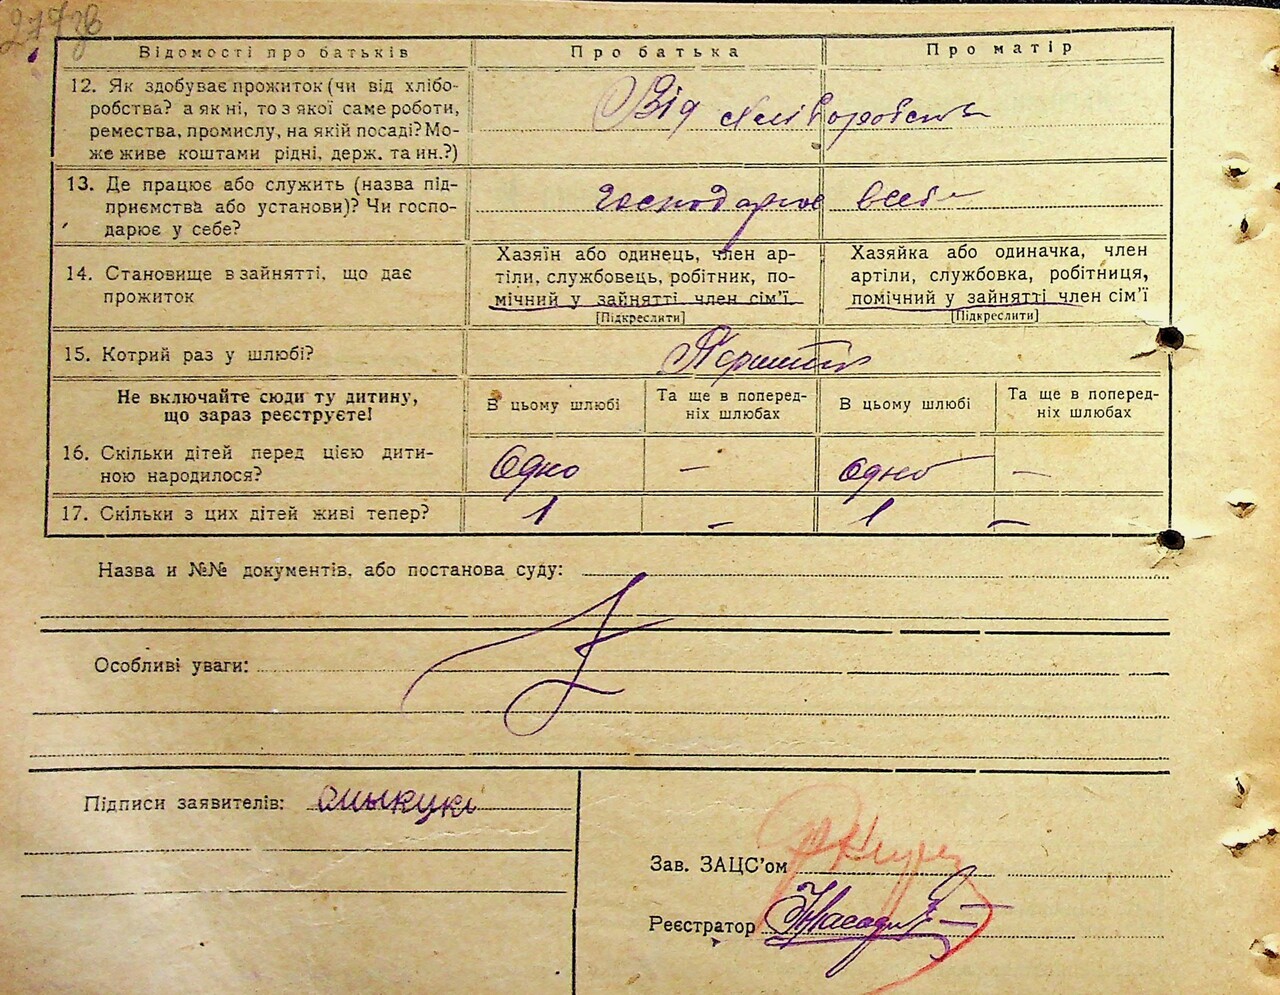 274зв
Відомості про батьків
Про батька
Про матір
12. Як здобуває прожиток (чи від хлібо-
робства? а як ні, то з якої саме роботи,
ремества, промислу, на якій посаді? Мо-
же живе коштами рідні, держ. та ин.?)
Від хліборобства
13. Де працює або служить (назва під-
приємства або установи)? Чи госпо-
дарює у себе?
господарює в себе
14. Становище в зайнятті, що дає
прожиток
Хазяїн або одинець, член ар-
тіли, службовець, робітник, по-
мічний у зайнятті член сім'ї
[Підкреслити]
Хазяйка або одиначка, член
артіли, службовка, робітниця,
помічний у зайнятті член сім'ї
[Підкреслити]
15. Котрий раз у шлюбі?
Не включайте сюди ту дитину,
що зараз реєструєте!
В цьому шлюбі
Та ще в поперед-
ніх шлюбах
В цьому шлюбі
Та ще в поперед-
ніх шлюбах
16. Скільки дітей перед цією дити-
ною народилося?
Одно
—
одно
—
17. Скільки з цих дітей живі тепер?
1
—
1
—
Назва и №№ документів, або постанова суду:
Особливі уваги:
Підписи заявителів:
Зав. ЗАЦС'ом
Реєстратор